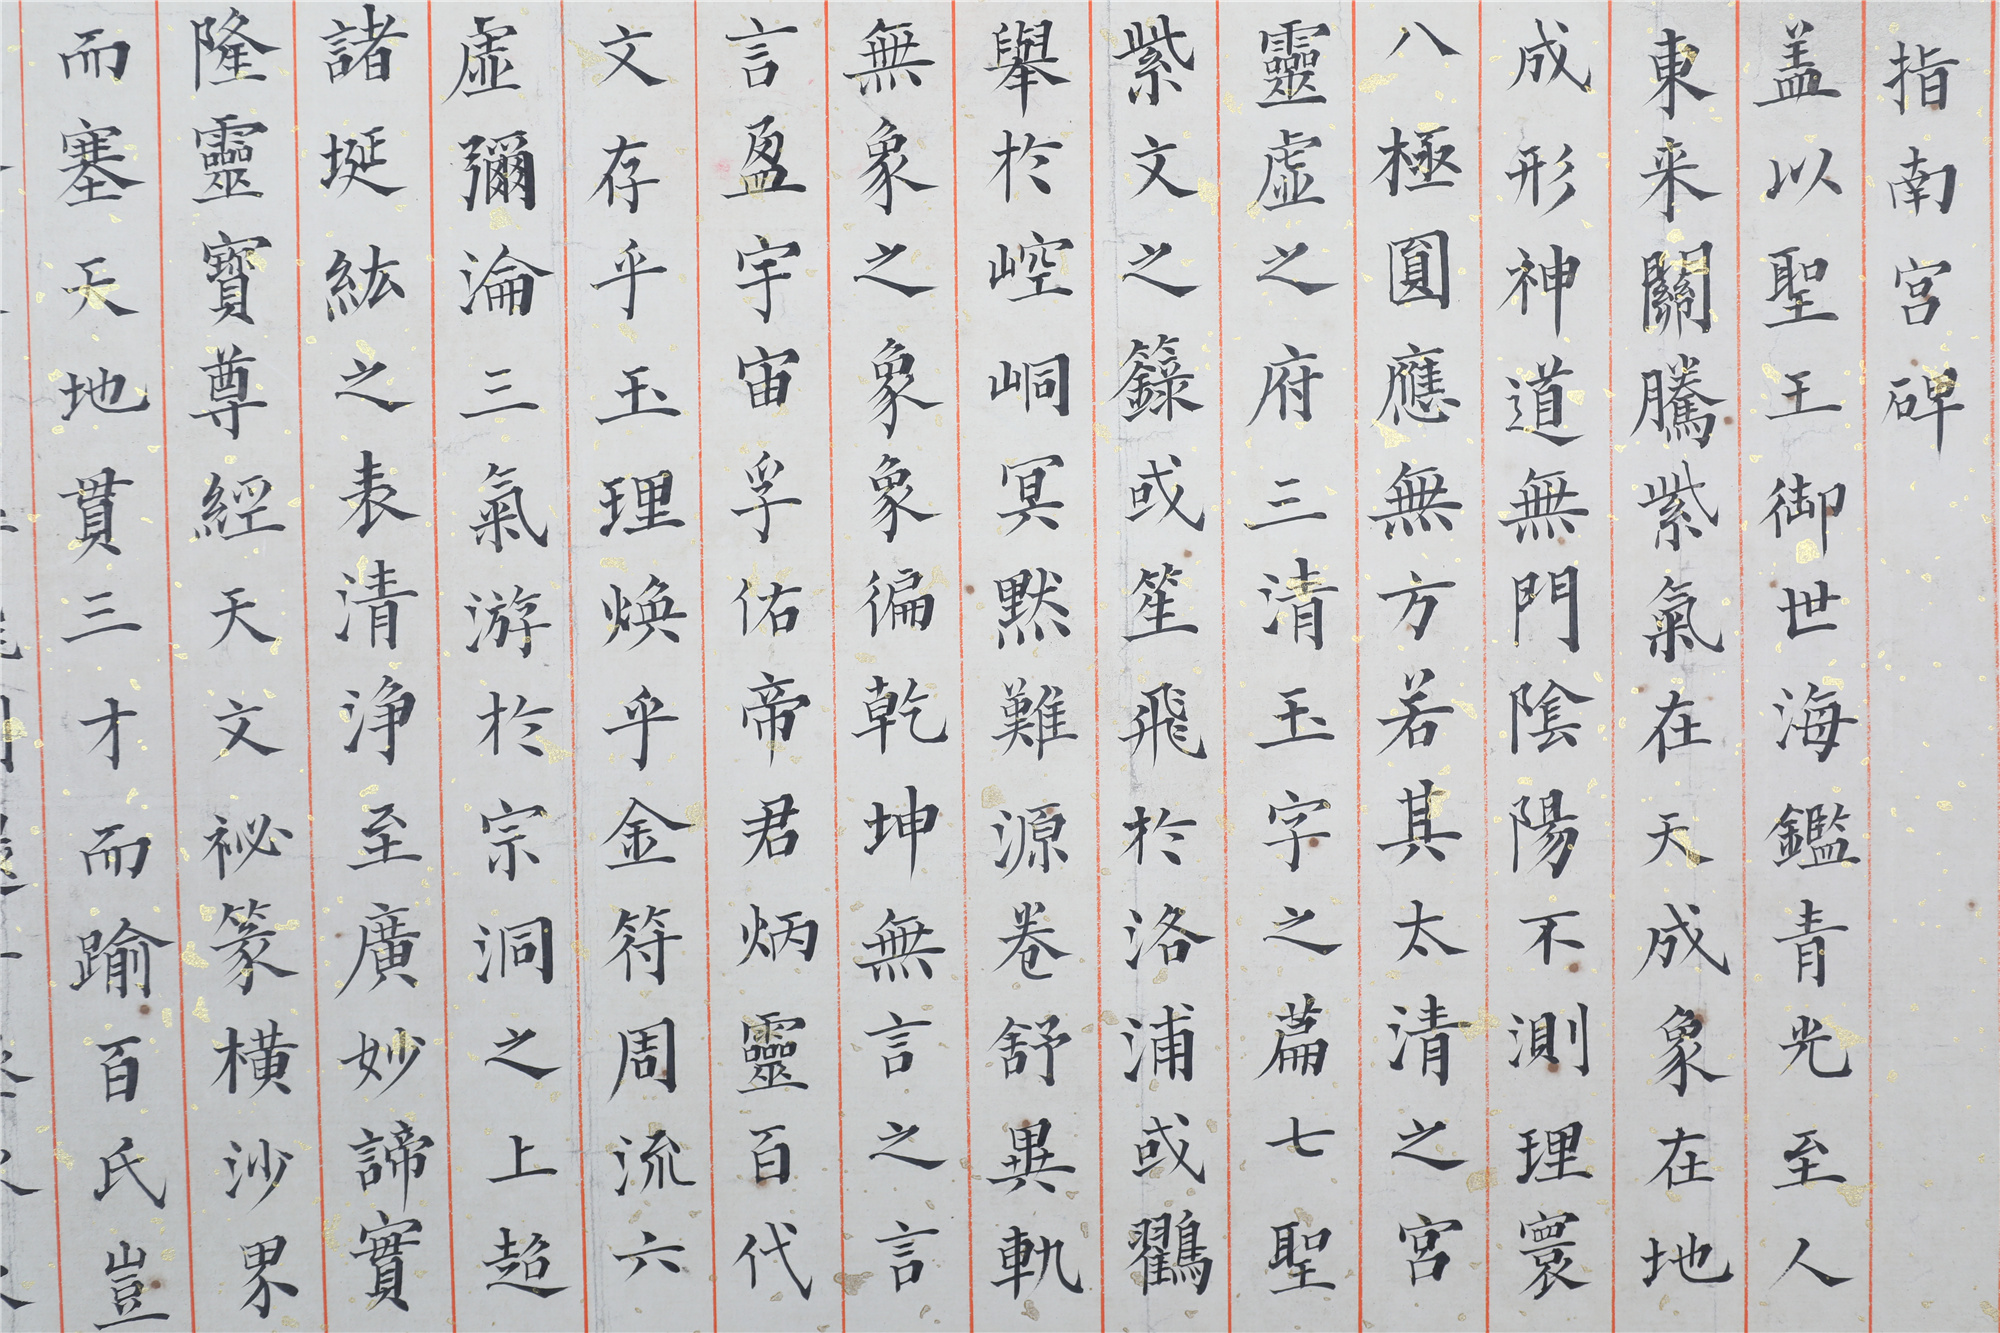 指南宮碑
盖以聖王御世海鑑青光至人
東来關騰紫氣在天成象在地
成形神道無門陰陽不測理寰
八極圓應無方若其太清之宮
靈虛之府三清玉字之篇七聖
紫文之籙或笙飛於洛浦或鸛
舉於崆峒冥默難源卷舒異軌
無象之象象徧乾坤無言之言
言盈宇宙孚佑帝君炳靈百代
文存乎玉理煥乎金符周流六
虛彌淪三氣游於宗洞之上超
諸埏紘之表清淨至廣妙諦實
隆靈寶尊經天文祕篆橫沙界
而塞天地貫三才而踰百氏豈